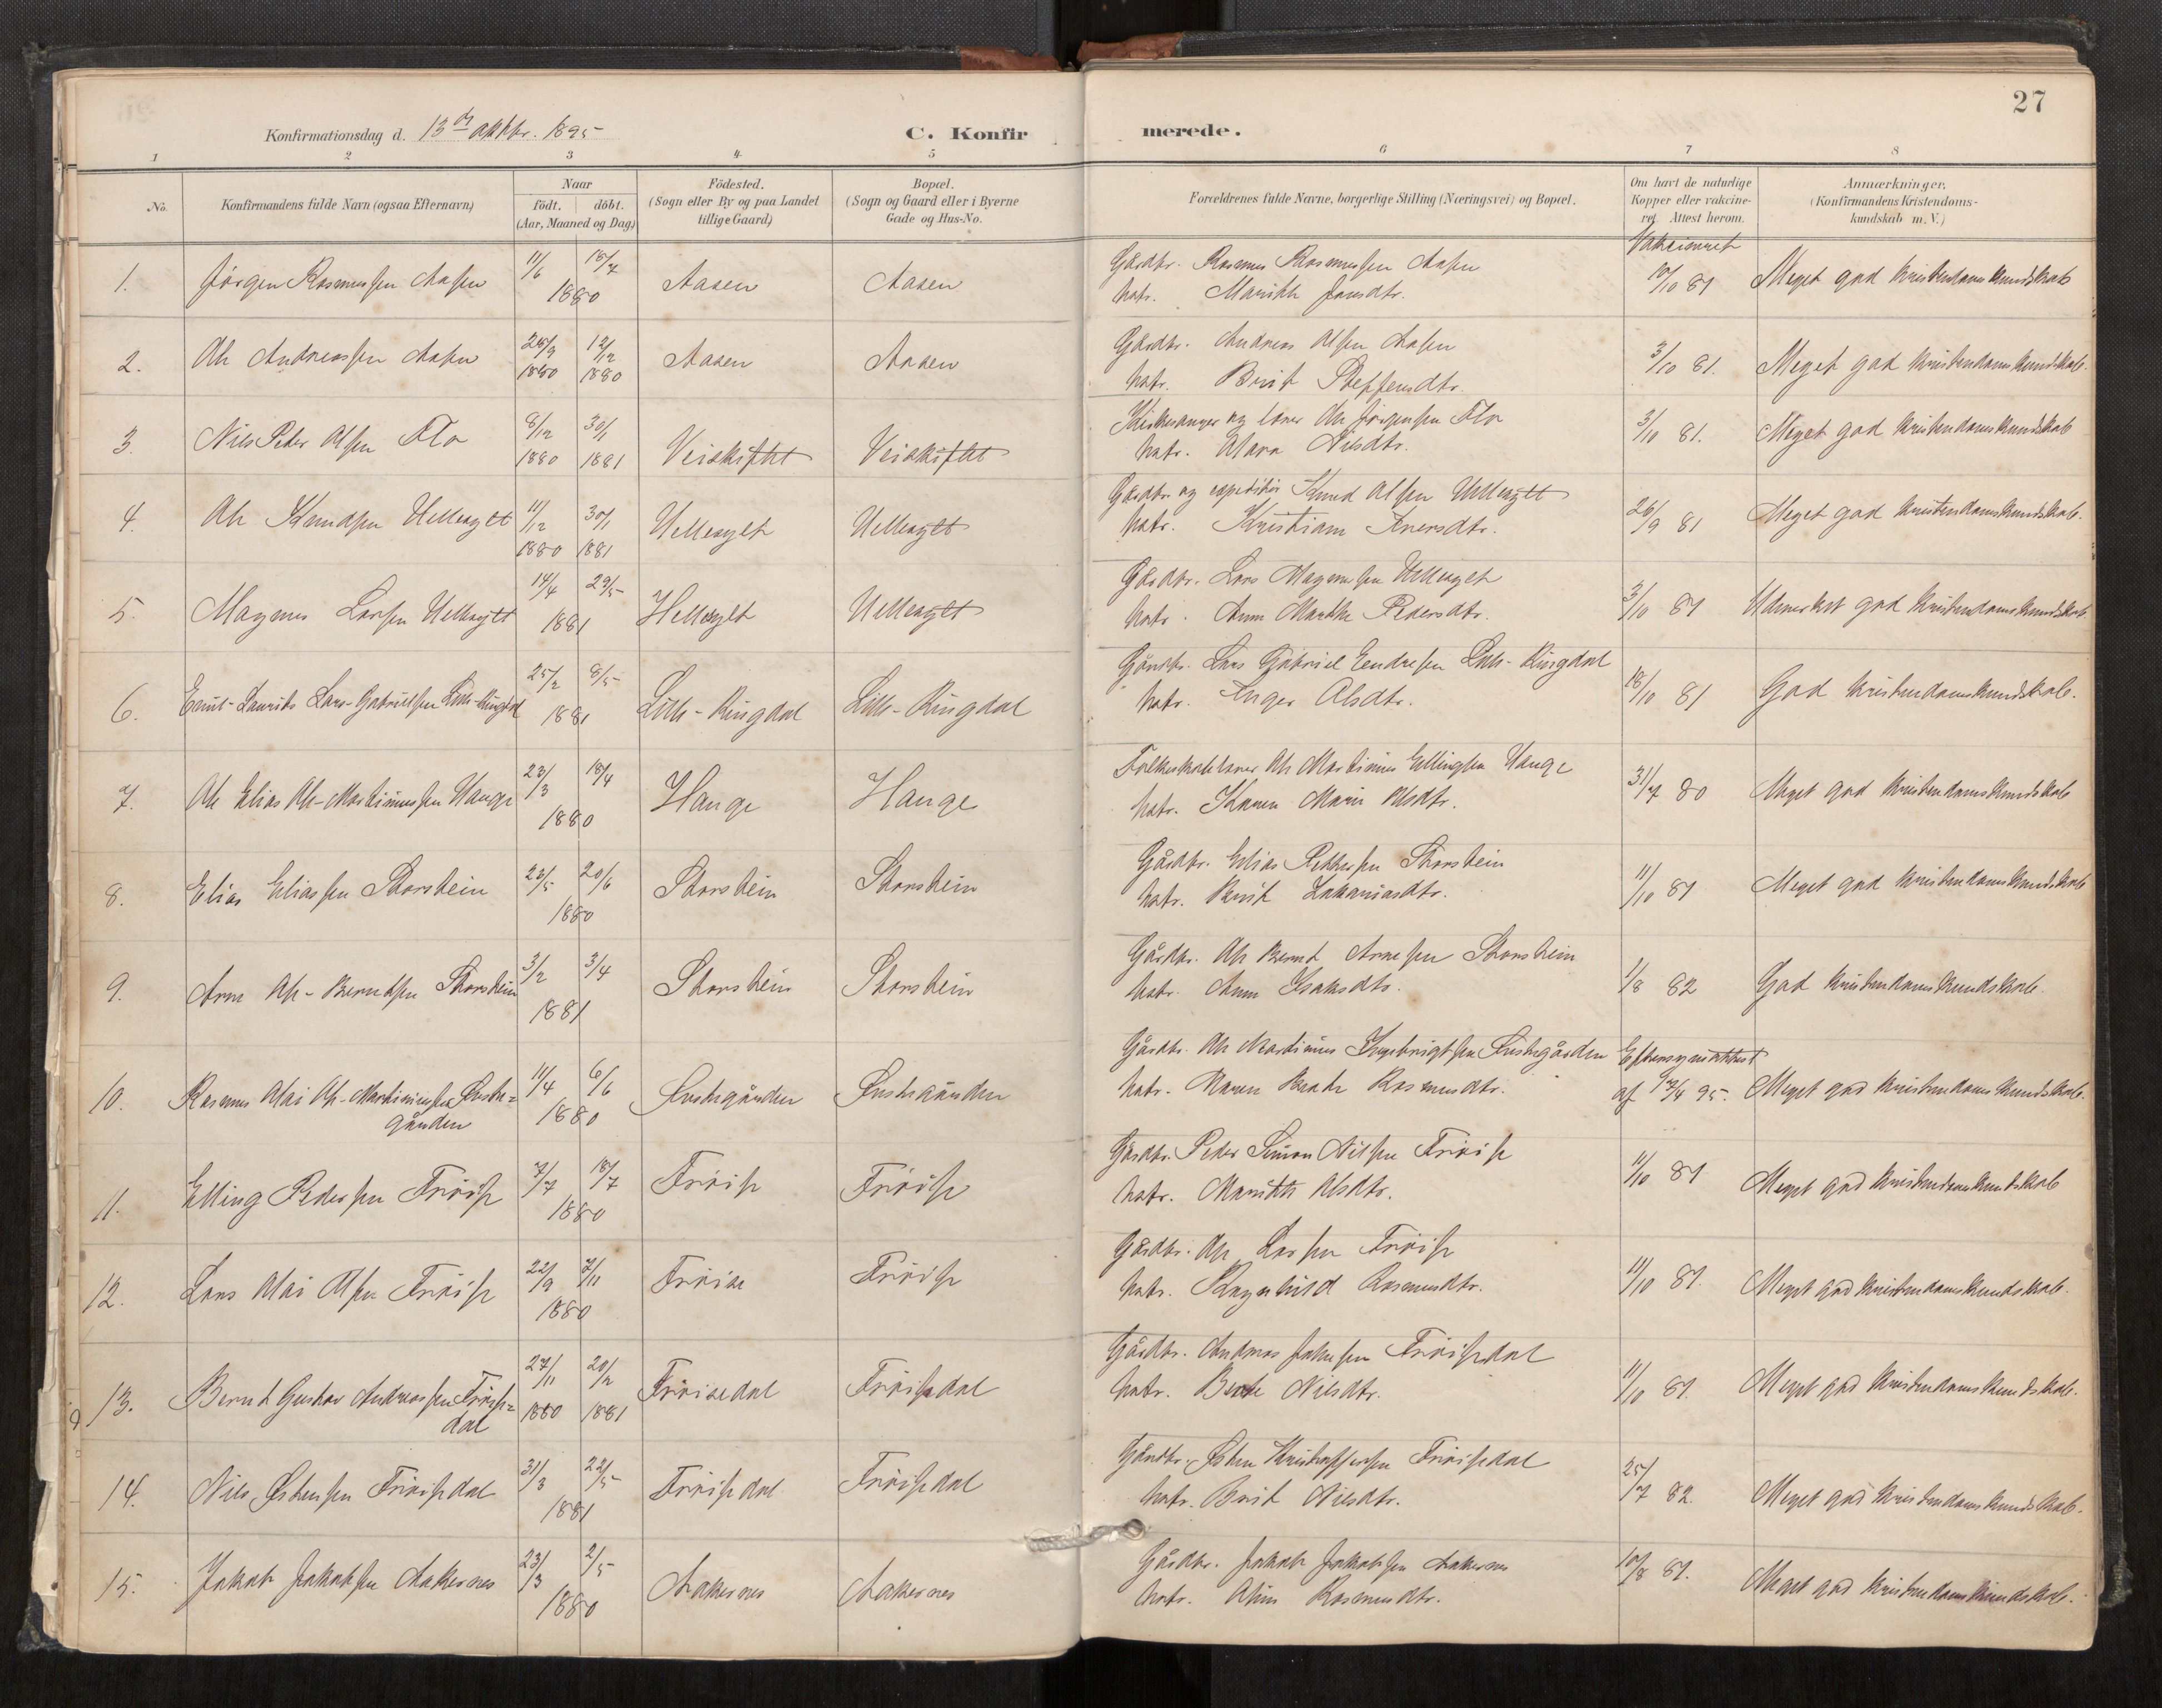 27
Konfirmationsdag d. 13de oktbr. 1895
C. Konfirmerede.
1 2 3 4 5 6 7 8
No.
Konfirmandens fulde Navn (ogsaa Efternavn)
Naar
Födt. döbt.
(Aar, Maaned og Dag)
Födested.
(Sogn eller By og paa Landet
tillige Gaard)
Bopæl.
(Sogn og Gaard eller i Byerne
Gade og Hus-No.
Forældrenes fulde Navne, borgerlige Stilling (Næringsvei) og Bopæl.
Om havt de naturlige
Kopper eller vakcine-
ret. Attest herom.
Anmærkninger.
(Konfirmandens Kristendoms-
kundskab m. V.)
Vakcineret
1. Jörgen Rasmussen Aasen 11/6 18/7 1880 Aasen Aasen Gårdbr. Rasmus Rasmussen Aasen 10/10 81 Meget god kristendomskundskab
hstr. Marithe Jonsdtr.
2. Ole Andreassen Aasen 26/9 1880 12/12 1880 Aasen Aasen Gårdbr. Andreas Olsen Aasen 3/10 81. Meget god kristendomskundskab.
hstr. Birit Steffensdtr.
3. Nils Peter Olsen Flo 8/12 1880 30/1 1881 Kirkesanger og lærer Ole Jörgensen Flo 3/10 81. Meget god kristendomskundskab
hstr. Olava Nilsdtr.
4. Ole Knudsen Hellesylt 11/12 1880 30/1 1881 Hellesylt Hellesylt Gårdbr. og expeditör Knud Olsen Hellesylt 26/9 81 Meget god kristendomskundskab.
hstr. Kristiane Iversdtr.
5. Magnus Larsen Hellesylt 14/4 29/5 1881 Hellesylt Hellesylt Gårdbr. Lars Magnussen Hellesylt 3/10 81 Udmerket god kristendomskundskab.
hstr. Anne Marthe Pedersdtr.
6. Emil-Laurits Lars-Gabrielsen Lille-Ringdal 25/2 8/5 1881 Lille-Ringdal Lille-Ringdal Gårdbr. Lars Gabriel Eendresen Lille-Ringdal 18/10 81 God kristendomskundskab.
hstr. Inger Olsdtr.
7. Ole Elias Ole-Martinussen Hauge 23/3 18/4 1880 Hauge Hauge Folkeskolelærer Ole Martinus Ellingsen Hauge 31/7 80 Meget god kristendomskundskab
hstr. Karen Marie Olsdtr.
8. Elias Eliassen Storstein 23/5 20/6 1880 Storstein Storstein Gårdbr. Elias Pettersen Storstein 11/10 81 Meget god kristendomskundskab
hstr. Birit Zakariasdtr.
9. Arne Ole-Berndsen Storstein 3/2 3/4 1881 Storstein Storstein Gårdbr. Ole Bernt Arnesen Storstein 1/8 82 God kristendomskundskab
hstr. Anne Isaksdtr.
10. Rasmus Olai Ole-Martinussen 11/4 6/6 1880 Gårdbr. Ole Martinus Ingebrigtsen Eftersynsattest
gården hstr. Maren Beate Rasmusdtr. af 17/4 95. Meget god kristendomskundskab.
11. Elling Pedersen Fröise 7/7 18/7 1880 Fröise Fröise Gårdbr. Peder Simon Nilsen Fröise 11/10 81 Meget god kristendomskundskab
hstr. Marithe Olsdtr.
12. Lars Olai Olsen Fröise 22/9 7/11 1880 Fröise Fröise Gårdbr. Ole Larsen Fröise 11/10 81. Meget god kristendomskundskab.
hstr. Ragnhild Rasmusdtr.
13. Bernt Gustav Andreassen Fröise=dal 27/11 1880 20/2 1881 Fröisedal Fröisedal Gårdbr. Andreas Fröisedal 11/10 81. Meget god kristendomskundskab.
hstr. Berte Nilsdtr.
14. Nils Østensen Fröisedal 31/3 22/5 1881 Fröisedal Fröisedal Gårdbr. Østen Kristoffersen Fröisedal 25/7 82. Meget god kristendomskundskab.
hstr. Birit Nilsdtr.
15. Jakob Jakobsen Aakernes 23/3 2/5 1880 Aakernes Aakernes Gårdbr. Jakob Jakobsen Aakernes 10/8 81. Meget god kristendomskundskab.
hstr. Rasmusdtr.